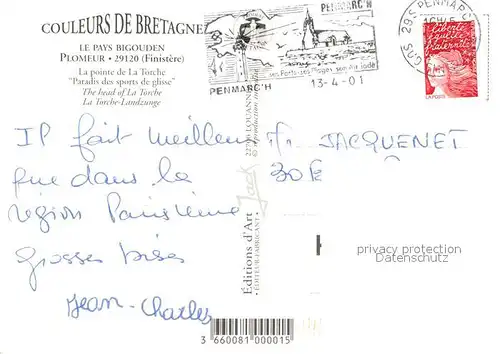 COULEURS DE BRETAGNE
LE PAYS BIGOUDEN
PLOMEUR • 29120 (Finistère)
La pointe de La Torche
"Paradis des sports de glisse"
The head of La Torche
La Torche-Landzunge
PENMARC'H
ses Ports ses Plages son
PENMARC'H
13-4-01
29S PENMARC'H
Liberté
égalité
fraternité
LA POSTE
Il fait meilleur
que dans la
région Parisienne
grosses bises
Jean-Charles
JACQUENET
Jack
Editions d'Art
• ÉDITEUR-FABRICANT •
22700 LOUANNEC
privacy protection
Datenschutz
3 660081 000015